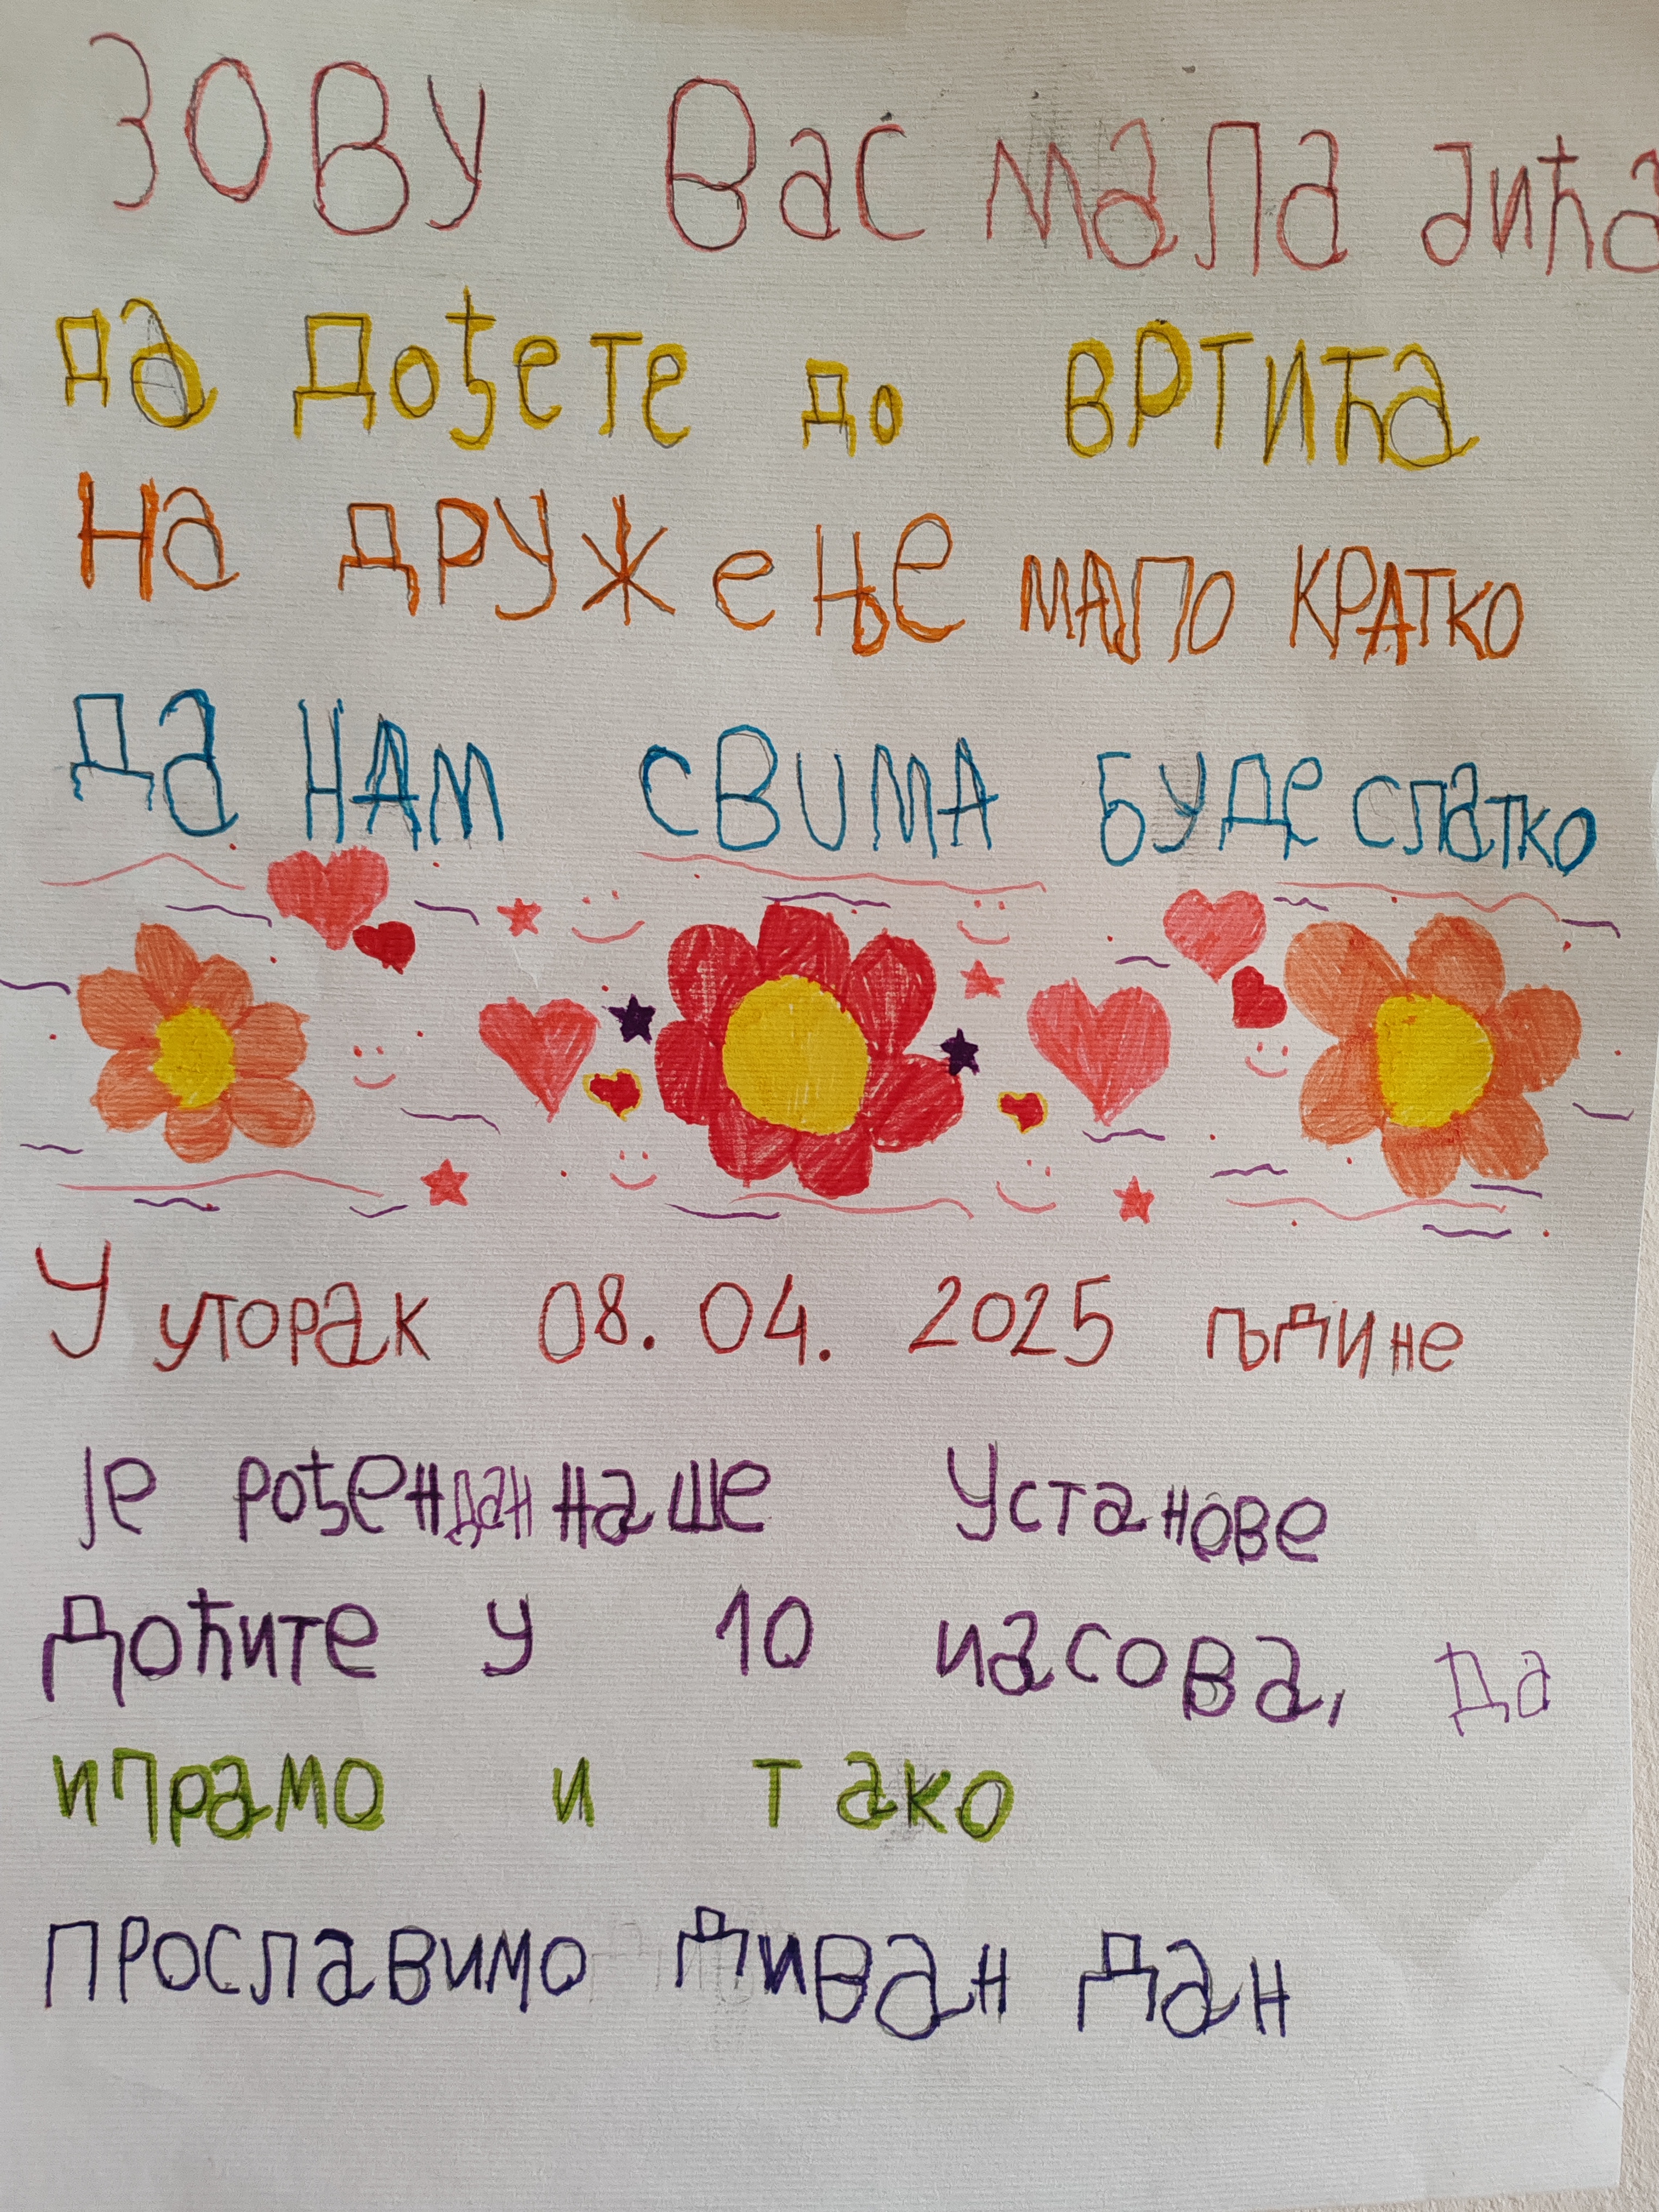 ЗОВУ Вас мала дића
да дођете до вртића
На дружење мало кратко
да нам свима буде слатко
У уторак 08. 04. 2025 године
је рођендан наше Установе
Доћите у 10 часова, да
играмо и тако
прославимо диван дан